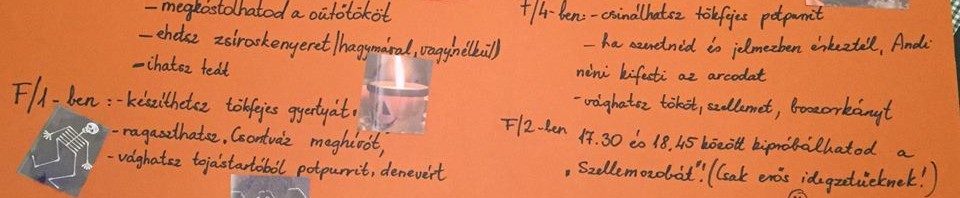 - megkóstolhatod a sütőtököt
- ehetsz zsíroskenyeret (hagymával, vagy nélkül)
- ihatsz teát
F/1-ben: - készíthetsz tökfejes gyertyát,
- ragaszthatsz "Csontváz meghívót",
- vághatsz tojástartóból potpurrit, denevért
F/4-ben: - csinálhatsz tökfejes potpurrit
- ha szeretnéd és jelmezben érkeztél, Andi
néni kifesti az arcodat
- vághatsz tököt, szellemet, boszorkányt
F/2-ben 17.30 és 18.45 között kipróbálhatod a
"Szellemszobát"! (Csak erős idegzetűeknek!)